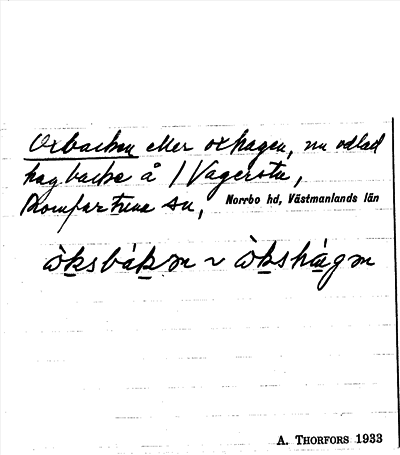 Oxbacken eller oxhagen, nu odlad
hagbacke å Vagersta,
Romfartuna sn, Norrbo hd, Västmanlands län
ò̀ksbákm ~ ò̀kshágm
A. THORFORS 1933